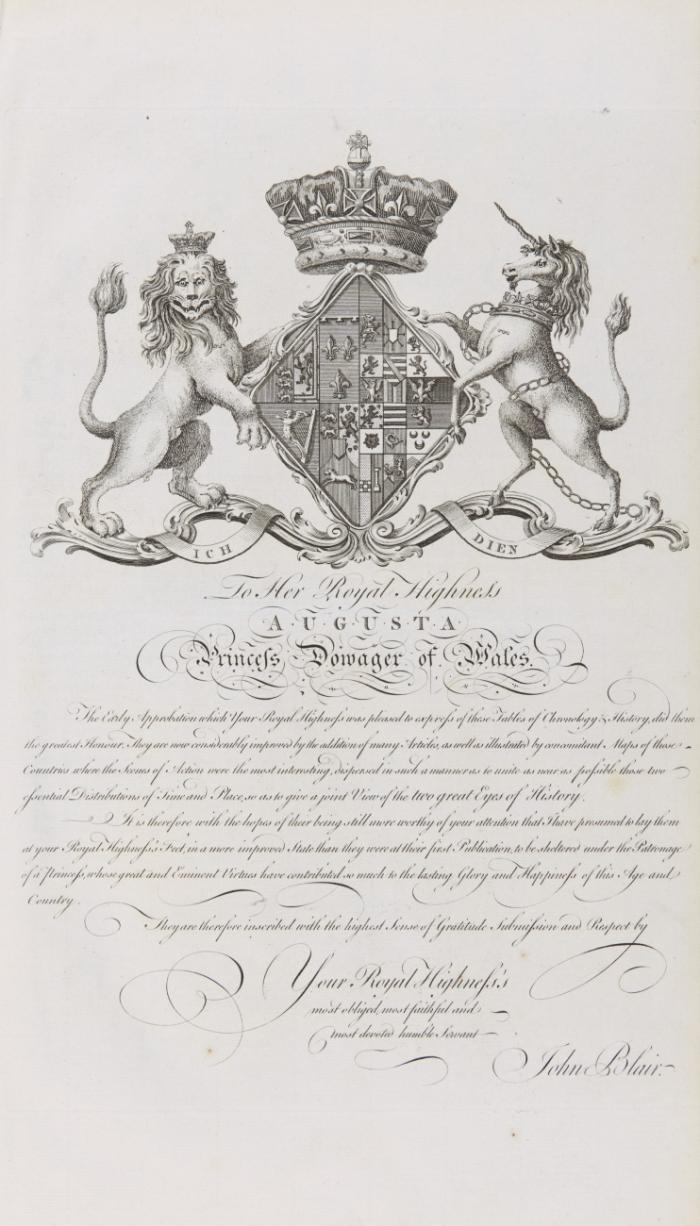 ICH DIEN
To Her Royal Highneſs
A·U·G·U·S·T·A
Princeſs Dowager of Wales.
The Early Approbation which Your Royal Highneſs was pleased to expreſs of these Tables of Chronology & History, did them
the greatest Honour. They are now considerably improved by the addition of many Articles, as well as illustrated by concomitant Maps of those
Countries where the Scenes of Action were the most interesting, dispersed in such a manner as to unite as near as poſsible those two
eſsential Distributions of Time and Place, so as to give a joint View of the two great Eyes of History.
It is therefore with the hopes of their being still more worthy of your attention that I have presumed to lay them
at your Royal Highneſs's Feet, in a more improved State than they were at their first Publication, to be sheltered under the Patronage
of a Princeſs, whose great and Eminent Virtues have contributed so much to the lasting Glory and Happineſs of this Age and
Country.
They are therefore inscribed with the highest Sense of Gratitude Submiſsion and Respect by
Your Royal Highneſs's
most obliged, most faithful and
most devoted humble Servant
John Blair.